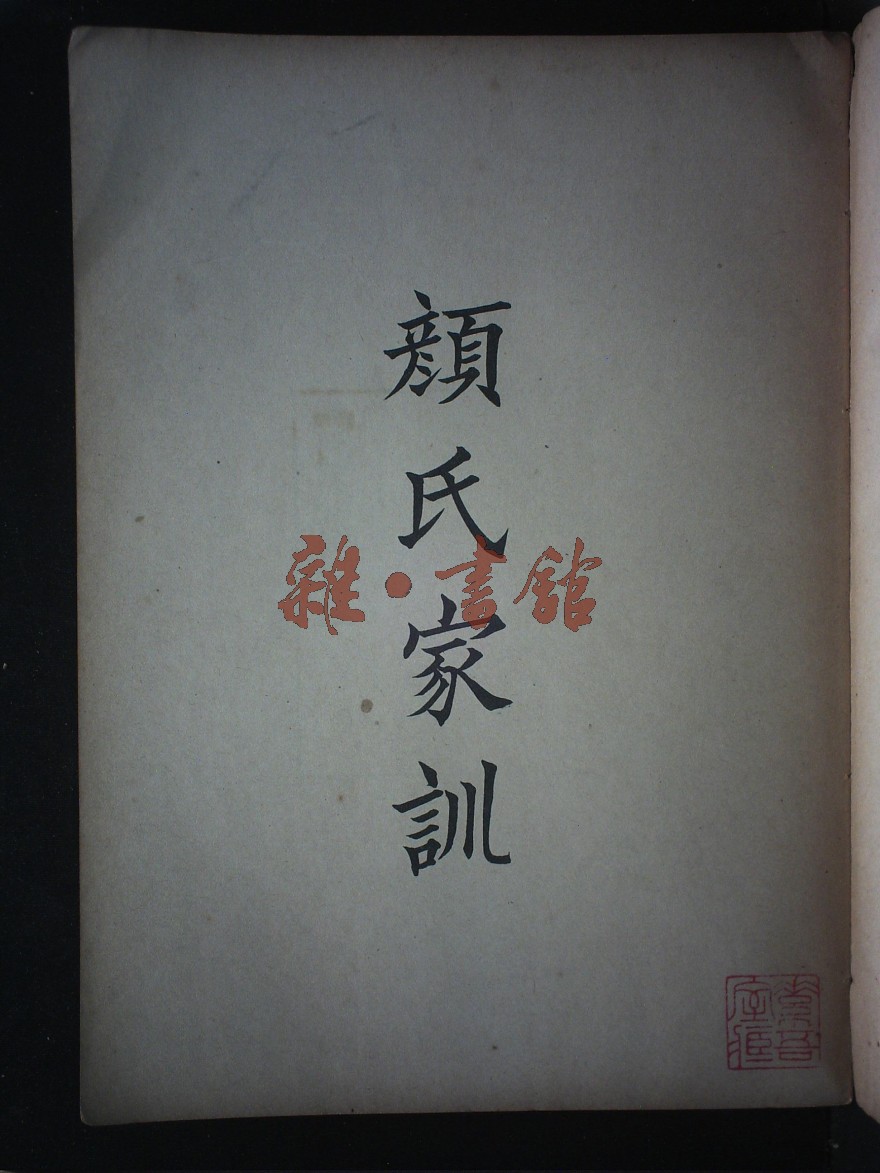 顏氏家訓
雜·書館